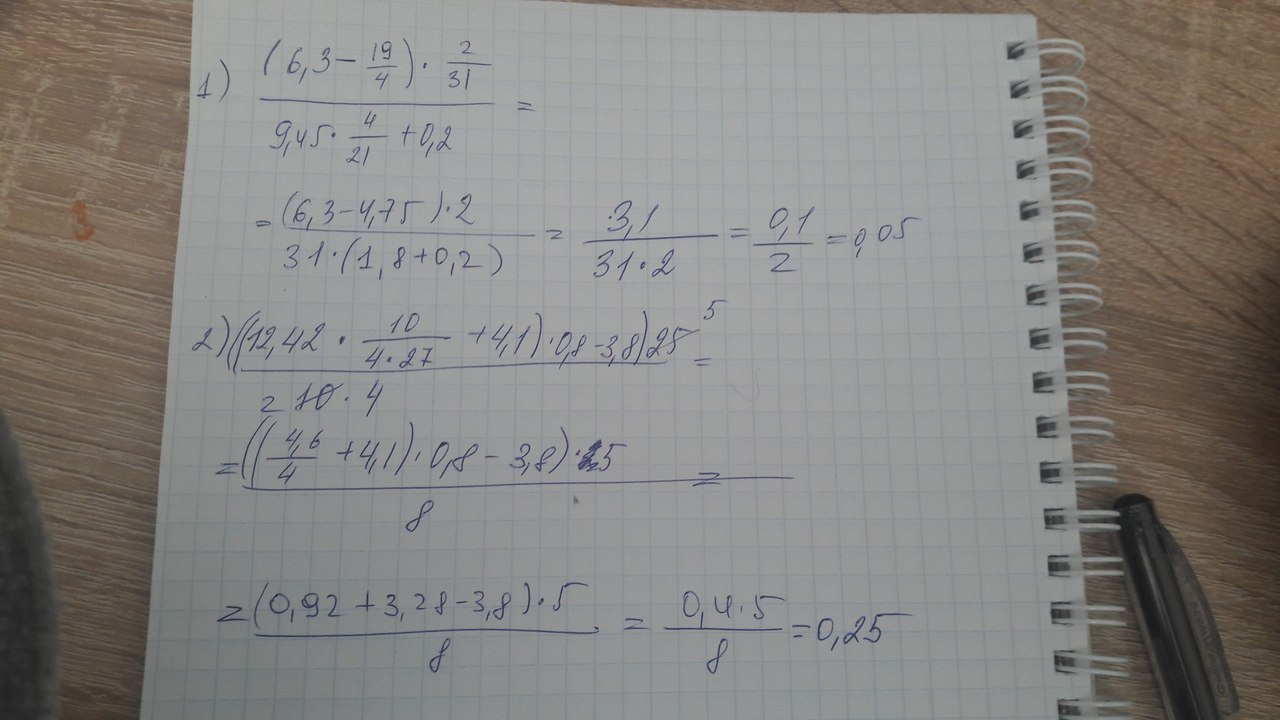 1) ((6,3 - 19/4) · 2/31) / (9,45 · 4/21 + 0,2) =
= ((6,3 - 4,75) · 2) / (31 · (1,8 + 0,2)) = 3,1 / (31 · 2) = 0,1 / 2 = 0,05
2) (((12,42 · 10/(4 · 27) + 4,1) · 0,8 - 3,8) 25 5) / (2 10 · 4) =
= (((4,6/4 + 4,1) · 0,8 - 3,8) · 5) / 8 =
= ((0,92 + 3,28 - 3,8) · 5) / 8 = (0,4 · 5) / 8 = 0,25